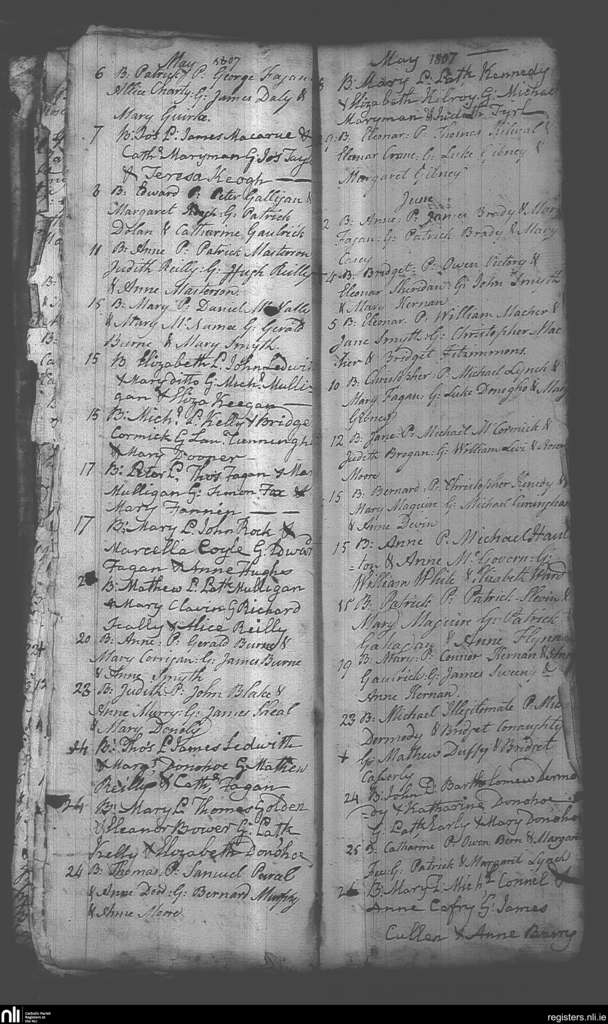 May 1807
6 B: Patrick P: George Fagan &
Alice Charly: G: James Daly &
Mary Quirke.
7 B: Jos L: James Macarue &
Cathe Maryman G: Jos
& Teresa Keogh
8 B: Edward P: Peter Galligan &
Margaret G: Patrick
Dolan & Catharine Gaulrick
11 B: Anne P: Patrick Masterson
Judith Reilly: G: Hugh Reilly
& Anne Masterson.
15 B: Mary P: Daniel
& Mary McNamee G: Gerald
Burne & Mary Smyth.
15 B Elizabeth L: John Ledwi
& Mary ditto G: Michl Mulli-
gan & Eliza Keegan
15 B: Michl L: Kelly & Bridge
Cormick G: Lau: Cunningh
& Mary Trooper
17 B: Peter L: Thos Fagan & Mar
Mulligan G: Simon Fox &
Mary Fannen
17 B: Mary L: John Rock &
Marcella Coyle G: Edward
Fagan & Anne Hughes
B: Mathew L: Patk Mulligan
& Mary Clavin G: Richard
Scally & Alice Reilly
20 B: Anne: P: Gerald Burne &
Mary Corrigan: G: James Burne
& Anne Smyth
23 B: Judith P: John Blake &
Anne Murry: G: James Sheal
& Mary Donoly
24 B: Thos L: James Ledwith
& Margt Donohoe G: Mathew
Reilly & Cathe Fagan
24 B: Mary L: Thomas Golden
& Eleanor Bower G: Patk
Kelly & Elizabeth Donohoe
24 B: Thomas. P: Samuel
& Anne Dod: G: Bernard Murphy
& Anne Moore
May 1807
B: Mary L: Patk Kennedy
& Elizabeth Kilroy G: Michael
Maryman &
B: Eleonar: P: Thomas &
Eleonar Crane: G: Luke Gibney &
Margaret Gilney
June
2 B: Anne: P: James Brady & Mary
Fagan: G: Patrick Brady & Mary
Casey
4 B: Bridget: P: Owen Victory &
Eleonar Sheridan: G: John Smyth
& Mary Kernan.
5 B: Eleonar. P: William Macher &
Jane Smyth: G: Christopher Mac
her & Bridget Fitzimmons.
10 B: Christopher P: Michael Lynch &
Mary Fagan: G: Luke Donogho & Mary
Gilney
12 B: Jane: P: Michael McCormick &
Judith Brogan: G: William Levi &
Moore
15 B: Bernard: P: Christopher Kenedy &
Mary Maguire G: Michael Cuningham
& Anne Devin
15 B: Anne P: Michael Han
lon & Anne McGovern: G:
William White & Elisabeth Ward
15 B: Patrick P: Patrick &
Mary Maguire G: Patrick
Gahagan & Anne Flynn
19 B: Mary: P: Connor Kernan & Ann
Gaulrick: G: James Sweeny &
Anne Kernan.
23 B: Michael Illigitmate P: Mic
Dermody & Bridget Conaughty
G: Mathew Duffy & Bridget
Caherly
24 B: John P: Bartholomew Dermo
dy & Katharine Donohoe
G: Patk Early & Mary Donoho
25 B: Catharine P: Owen Bern & Margaret
Fey: G: Patrick & Margaret Lynch
26 B: Mary L: Michl Connel &
Anne Cafry G: James
Cullen & Anne Berry
nli Catholic Parish
Registers at
the NLI
registers.nli.ie